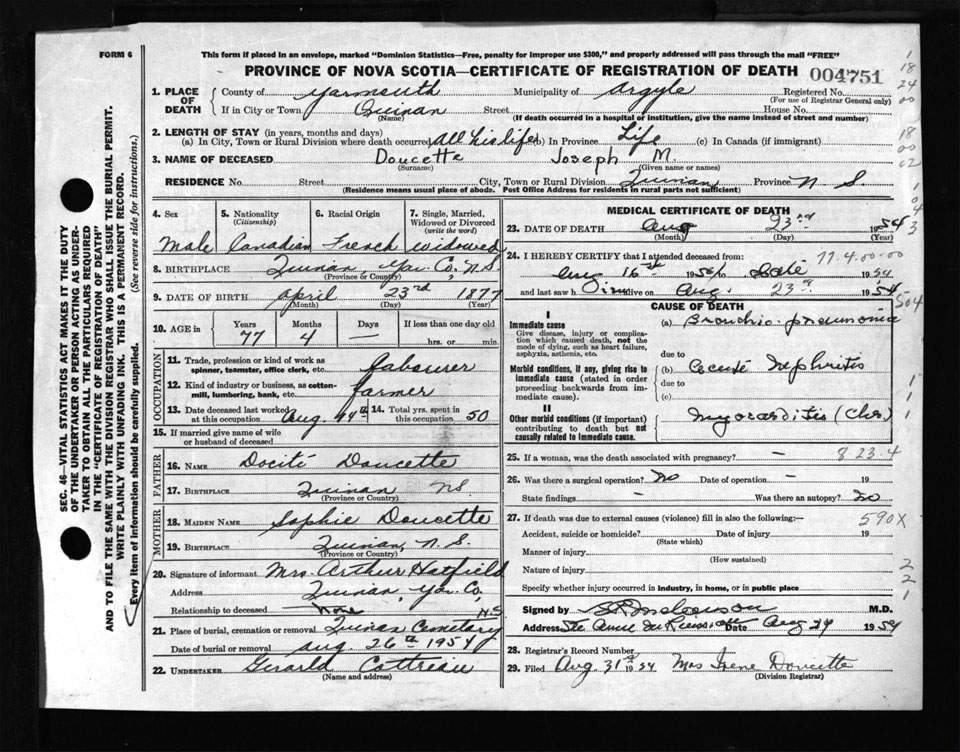 FORM 6
This form if placed in an envelope, marked "Dominion Statistics—Free, penalty for improper use $300," and properly addressed will pass through the mail "FREE"
PROVINCE OF NOVA SCOTIA—CERTIFICATE OF REGISTRATION OF DEATH 004751
SEC. 46—VITAL STATISTICS ACT MAKES IT THE DUTY
OF THE UNDERTAKER OR PERSON ACTING AS UNDER-
TAKER TO OBTAIN ALL THE PARTICULARS REQUIRED
IN THE "CERTIFICATE OF REGISTRATION OF DEATH"
AND TO FILE THE SAME WITH THE DIVISION REGISTRAR WHO SHALL ISSUE THE BURIAL PERMIT.
WRITE PLAINLY WITH UNFADING INK. THIS IS A PERMANENT RECORD.
Every item of information should be carefully supplied. (See reverse side for instructions.)
1. PLACE OF DEATH County of Yarmouth Municipality of Argyle Registered No.
(For use of Registrar General only)
If in City or Town Quinan Street House No.
(Name) (If death occurred in a hospital or institution, give the name instead of street and number)
2. LENGTH OF STAY (in years, months and days)
(a) In City, Town or Rural Division where death occurred All his life (b) In Province Life (c) In Canada (if immigrant)
3. NAME OF DECEASED Doucette Joseph M.
(Surname) (Given name or names)
RESIDENCE No. Street City, Town or Rural Division Quinan Province N S.
(Residence means usual place of abode. Post Office Address for residents in rural parts not sufficient)
4. Sex 5. Nationality (Citizenship) 6. Racial Origin 7. Single, Married, Widowed or Divorced (write the word)
Male Canadian French widowed
8. BIRTHPLACE Quinan Yar. Co, N.S.
(Province or Country)
9. DATE OF BIRTH April 23rd 1877
(Month) (Day) (Year)
10. AGE in Years Months Days If less than one day old
77 4 — hrs. or min.
OCCUPATION
11. Trade, profession or kind of work as spinner, teamster, office clerk, etc. Labourer
12. Kind of industry or business, as cotton-mill, lumbering, bank, etc. farmer
13. Date deceased last worked at this occupation Aug. 14. Total yrs. spent in this occupation 50
15. If married give name of wife or husband of deceased
FATHER
16. NAME Docité Doucette
17. BIRTHPLACE Quinan N.S.
(Province or Country)
MOTHER
18. MAIDEN NAME Sophie Doucette
19. BIRTHPLACE Quinan, N.S.
(Province or Country)
20. Signature of informant Mrs. Arthur Hatfield
Address Quinan, Yar. Co, N.S
Relationship to deceased None
21. Place of burial, cremation or removal Quinan Cemetary
Date of burial or removal Aug. 26th 1954
22. UNDERTAKER Gerarld Cottreau
(Name and address)
MEDICAL CERTIFICATE OF DEATH
23. DATE OF DEATH Aug 23rd 1954
(Month) (Day) (Year)
24. I HEREBY CERTIFY that I attended deceased from:
Aug 16 1954 to Date 1954
77.4.00-00
and last saw h im alive on Aug. 23rd 1954
CAUSE OF DEATH
I
Immediate cause
Give disease, injury or complication which caused death, not the mode of dying, such as heart failure, asphyxia, asthenia, etc.
(a) Broncho-pneumonia
due to
Morbid conditions, if any, giving rise to immediate cause (stated in order proceeding backwards from immediate cause).
(b) Acute Nephritis
due to
(c)
II
Other morbid conditions (if important) contributing to death but not causally related to immediate cause.
Myocarditis (Chr.)
25. If a woman, was the death associated with pregnancy? — 823.4
26. Was there a surgical operation? No Date of operation — 19
State findings — Was there an autopsy? No
27. If death was due to external causes (violence) fill in also the following:— 590X
Accident, suicide or homicide? Date of injury 19
(State which)
Manner of injury
(How sustained)
Nature of injury
Specify whether injury occurred in industry, in home, or in public place
Signed by M.D.
Address Ste Anne du Ruisseau Date Aug 24 1954
28. Registrar's Record Number
29. Filed Aug. 31st 1954 Mrs Irene Doucette
(Division Registrar)